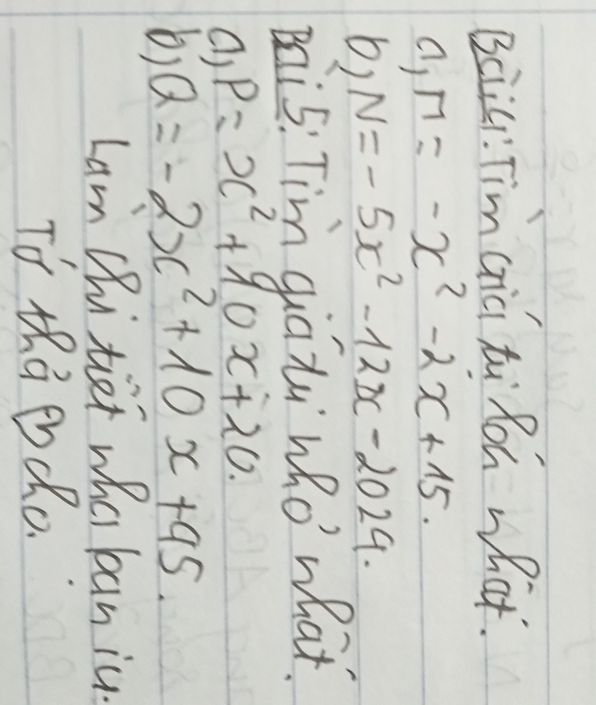 Bài 4: Tìm giá trị lớn nhất.
a, M = -x² - 2x + 15.
b, N = - 5x² - 12x - 2024.
Bài 5: Tìm giá trị nhỏ nhất.
a, P = x² + 10x + 20.
b, Q = - 2x² + 10x + 95.
Làm chi tiết nha bạn iu.
Tớ thả cho.